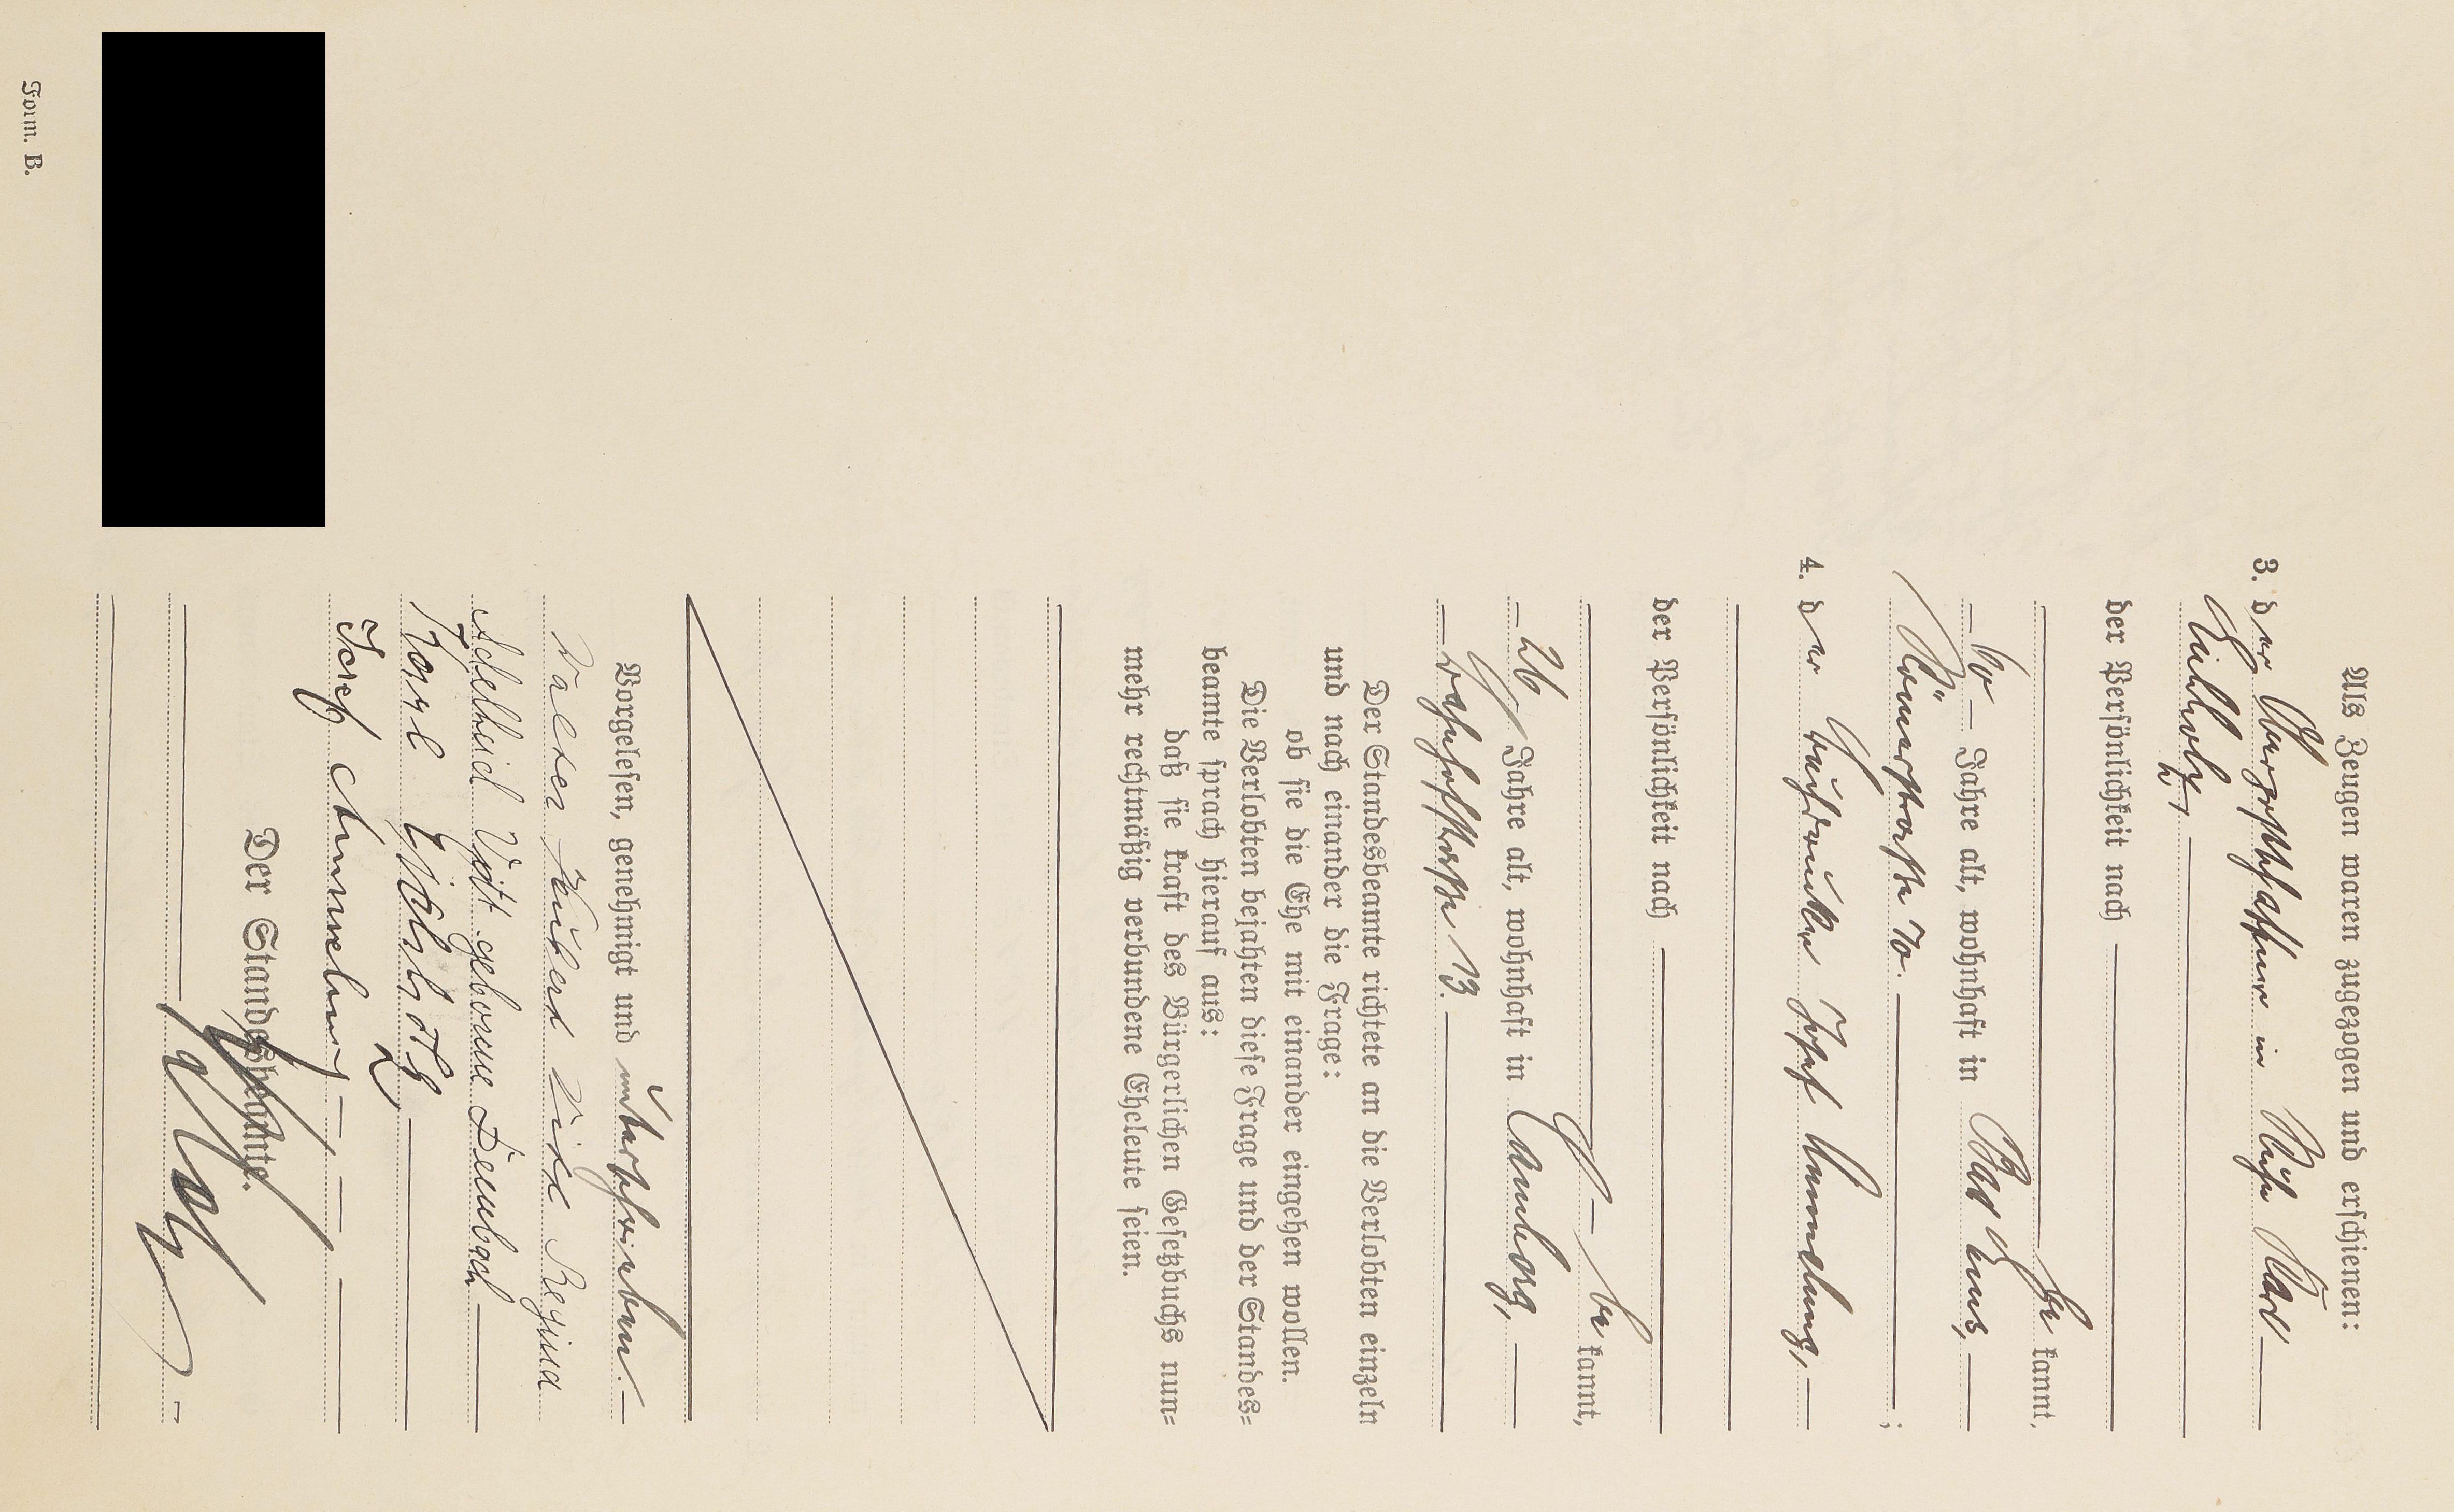 Als Zeugen waren zugezogen und erschienen:
3. der in Ruhe Karl
der Persönlichkeit nach
be kannt,
60 Jahre alt, wohnhaft in Bad Ems,
Römerstraße 70. ;
4. der Josef Ammelung,
der Persönlichkeit nach
be kannt,
26 Jahre alt, wohnhaft in Camberg,
Bahnhofstraße 13.
Der Standesbeamte richtete an die Verlobten einzeln
und nach einander die Frage:
ob sie die Ehe mit einander eingehen wollen.
Die Verlobten bejahten diese Frage und der Standes-
beamte sprach hierauf aus:
daß sie kraft des Bürgerlichen Gesetzbuchs nun-
mehr rechtmäßig verbundene Eheleute seien.
Vorgelesen, genehmigt und unterschrieben.
Adelheid geborene Dembach
Karl
Josef Ammelung
Der Standesbeamte.
Form. B.